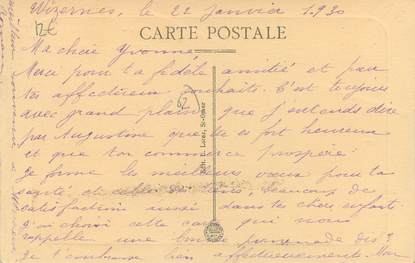 Wizernes, le 22 Janvier 1930
12€
CARTE POSTALE
Ma chère Yvonne
Merci pour ta fidèle amitié et pour
tes affectueux souhaits. C'est toujours
avec grand plaisir que j'entends dire
par Augustine que tu es fort heureuse
et que ton commerce prospère.
Je forme les meilleurs vœux pour ta
santé et celle des tiens, beaucoup de
satisfaction aussi dans tes chers enfants
J'ai choisi cette carte qui nous
rappelle une promenade des
Je t'embrasse bien affectueusement
62
Edit. L. Loez, St-Omer